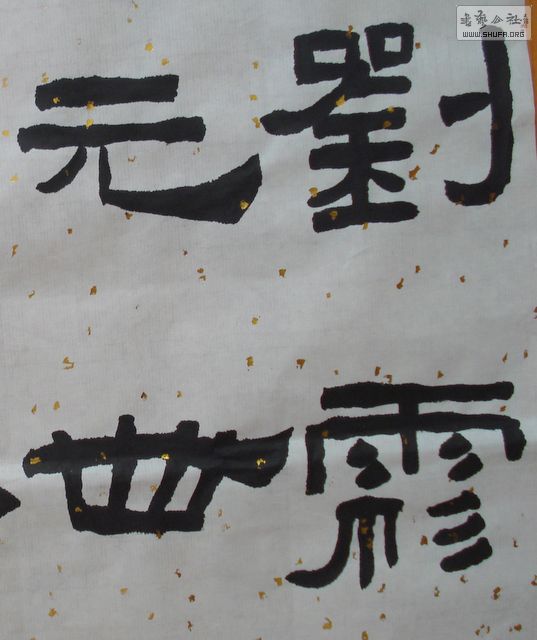 書藝公社
www.SHUFA.ORG
劉
元世